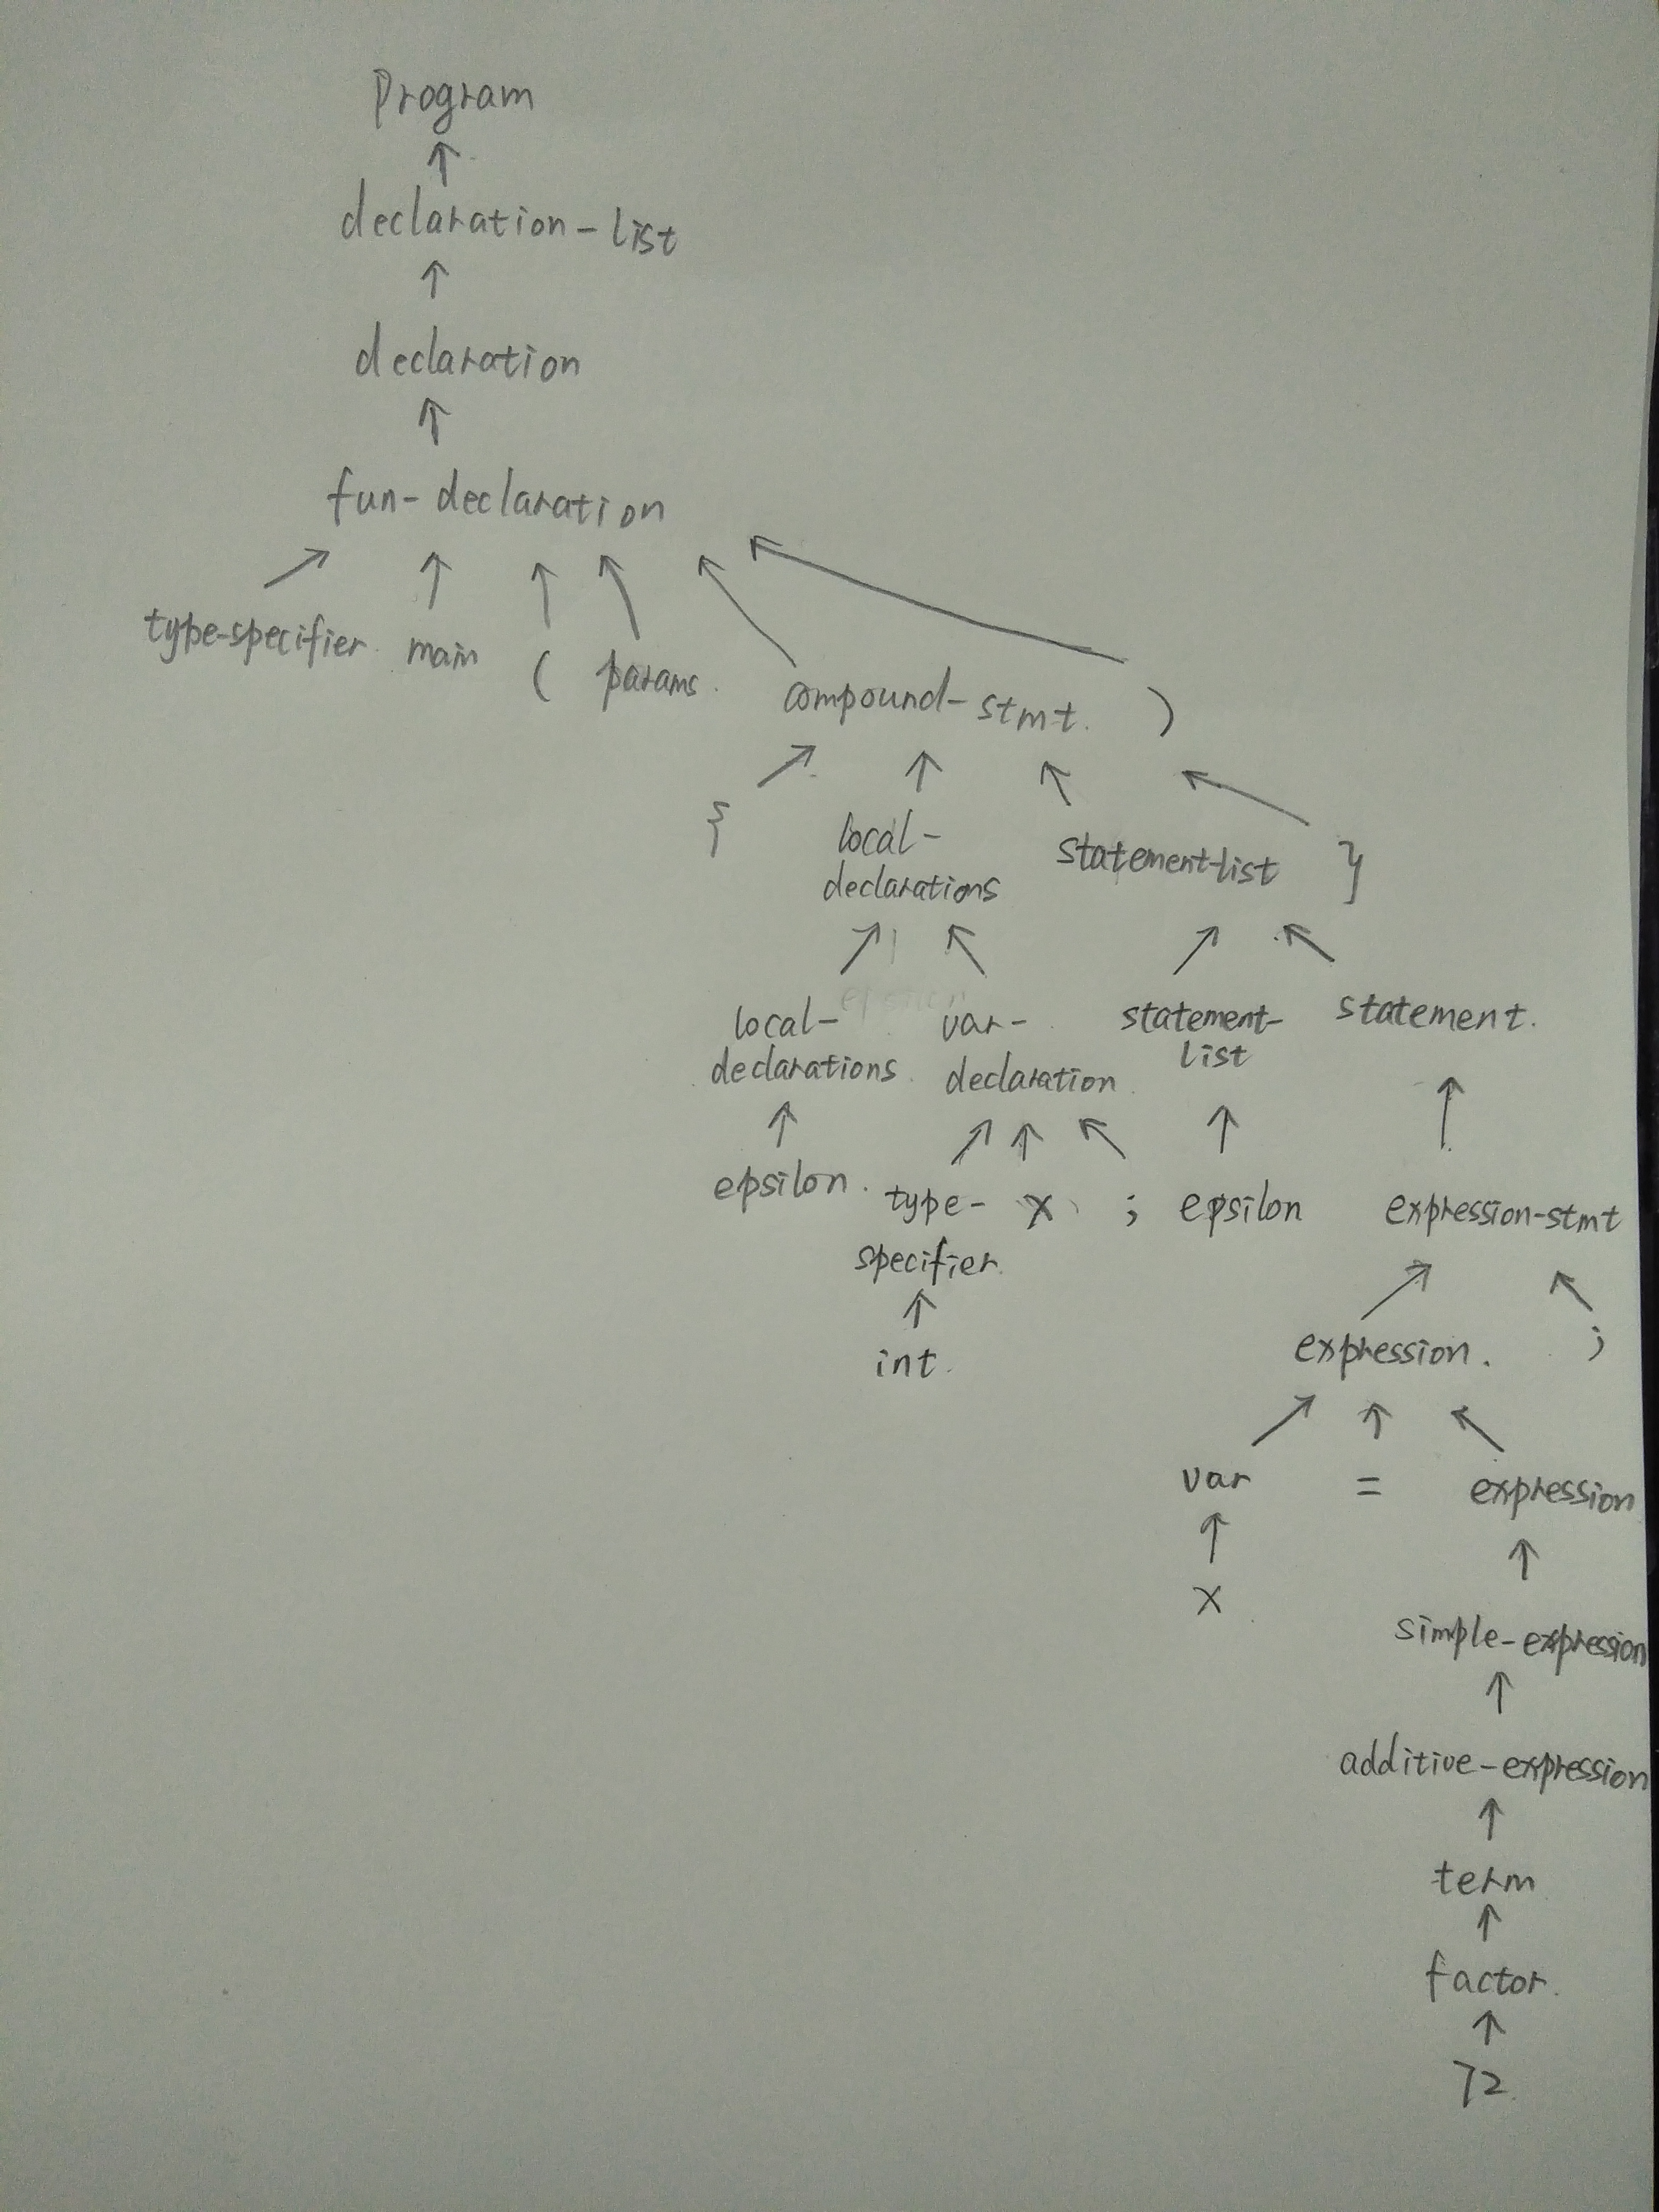 Program
declaration-list
declaration
fun-declaration
type-specifier main ( params. compound-stmt. )
{ local-declarations statement-list }
local-declarations. var-declaration. statement-list statement.
epsilon. type-specifier. x ; epsilon expression-stmt
int. expression. ;
var = expression
x simple-expression
additive-expression
term
factor.
72